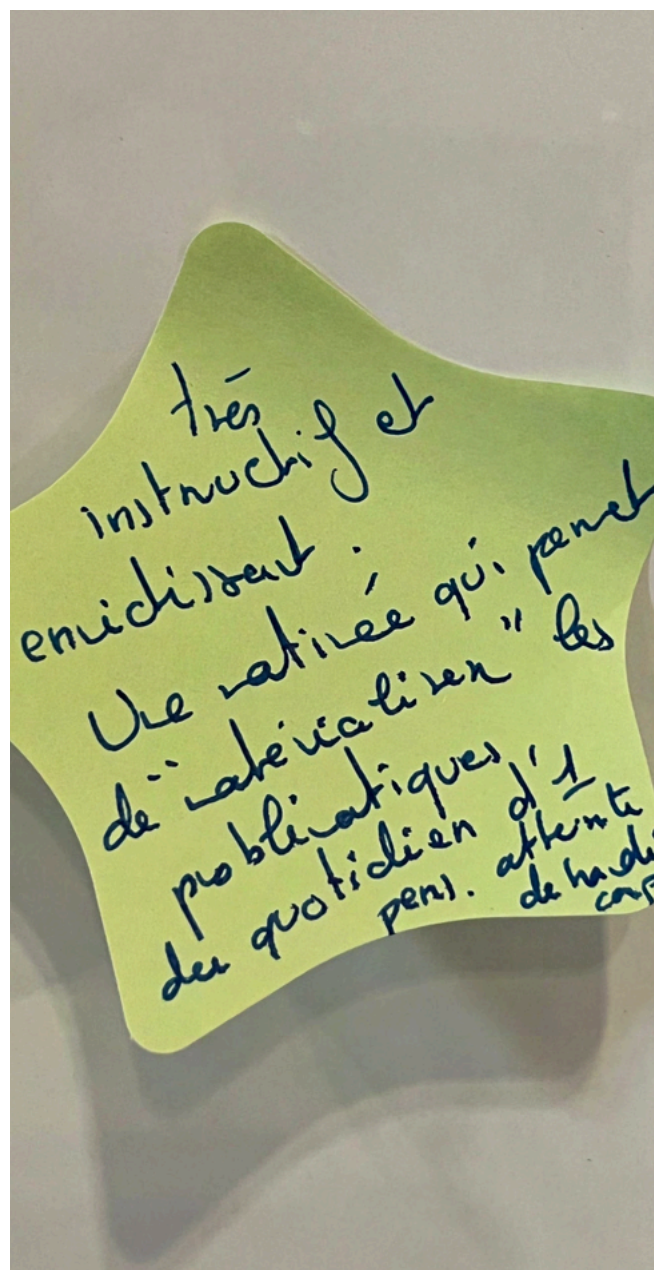 très
instructif et
enrichissant.
Une matinée qui permet
de "matérialiser" les
problématiques
du quotidien d'1
pers. atteinte
de handi